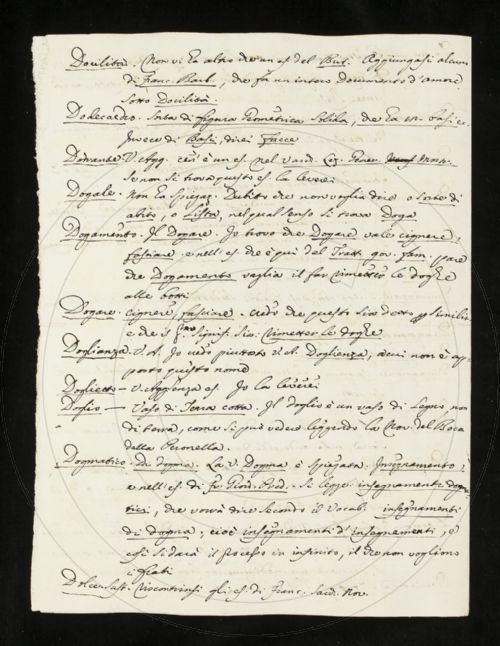 Docilità. Non vi ha altro che un es. del But. Aggiungasi alcun
di Franc. Barb., che fa un intero documento d'amore
sotto Docilità.
Dodecaedro. Sorta di figura Geometrica solida, che ha 12. basi &c.
Invece di Basi, direi facce
V. Agg. ed è un es. nel
se non si trova questo es. la leverei
Dogale. Non ha spiegaz. Dubito che non voglia dire o sorta di
abito, o Lista, nel qual senso si trova Doga
Dogamento. Il Dogare. Io trovo che Dogare vale cignere,
fasciare, e nell'es. che è qui del Tratt. gov. fam. pare
che Dogamento vaglia il far rimetter le doghe
alle botti
Dogare. cignere, fasciare. credo che questo sia detto simili
e che il signif. sia: Rimetter le doghe
Doglianza. V.A. Io credo piuttosto V.A. Doglienza,
questo nome
Doglietto — es. Io la leverei
Doglio — Vaso di Terra cotta. Il doglio è un vaso di legno non
di terra, come si può vedere leggendo la Nov. del Bocc.
della Peronella.
Dogmatico. di dogma. La v. Dogma è spiegata. Insegnamento:
e nell'es. di fr. Giord. Pred. si legge insegnamenti dogma-
tici, che verrà dire secondo il Vocab. insegnamenti
di dogma, cioè insegnamenti d'insegnamenti, e
così si darà il processo in infinito, il che non vogliono
i frati
Dolce. Sust. Riscontrinsi gli es. di Franc. Sacch. Nov.